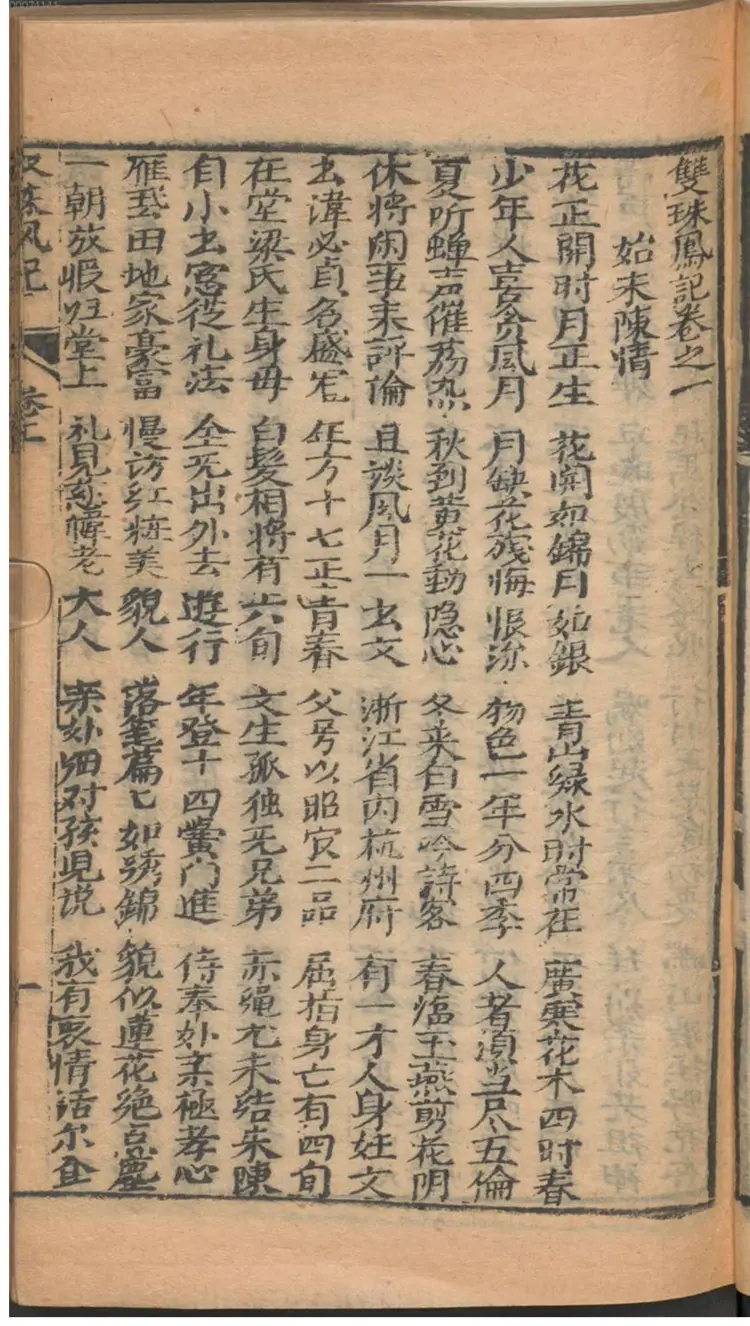 雙珠鳳記卷之一
始末陳情
花正開时月正生 花開如錦月如銀 青山绿水时常在 廣栽花木四时春
少年人喜贪風月 月缺花残悔恨深 物色一年分四季 人者須当尽五倫
夏听蝉声催荡热 秋到黄花動隐心 冬来白雪吟詩客 春臨玉燕剪花阴
休将闲事来評倫 且談風月一玄文 浙江省内杭州府 有一才人身姓文
玄諱必貞名盛宏 年方十七正青春 父号以昭官二品 屈指身亡有四旬
在堂梁氏生身母 白髮相将有六旬 文生孤独无兄弟 赤绳尤未结朱陳
自小玄窓從礼法 全无出外去遊行 年登十四黌门進 侍奉外亲極孝心
雁 田地家豪富 慢訪红粧美貌人 落笔篇匕如绣錦 貌似蓮花绝点塵
一朝放暇归堂上 礼見慈幃老大人 亲外细对孩兒说 我有衷情话尔全
双珠凤記 卷上 一